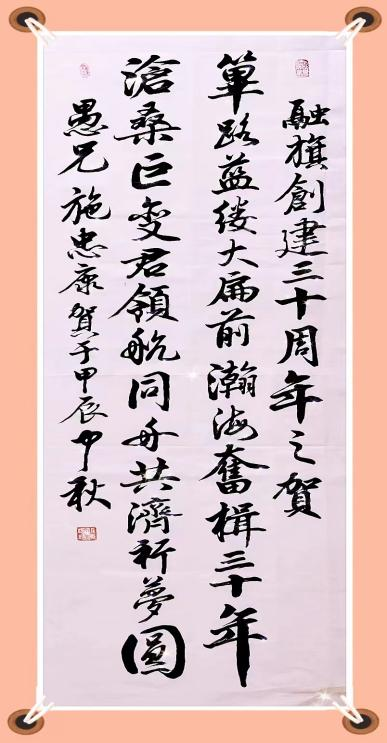 融旗創建三十周年之賀
篳路藍縷大廟前瀚海奮楫三十年
滄桑巨變君領航同舟共濟祈夢圓
愚兄施忠康賀于甲辰中秋